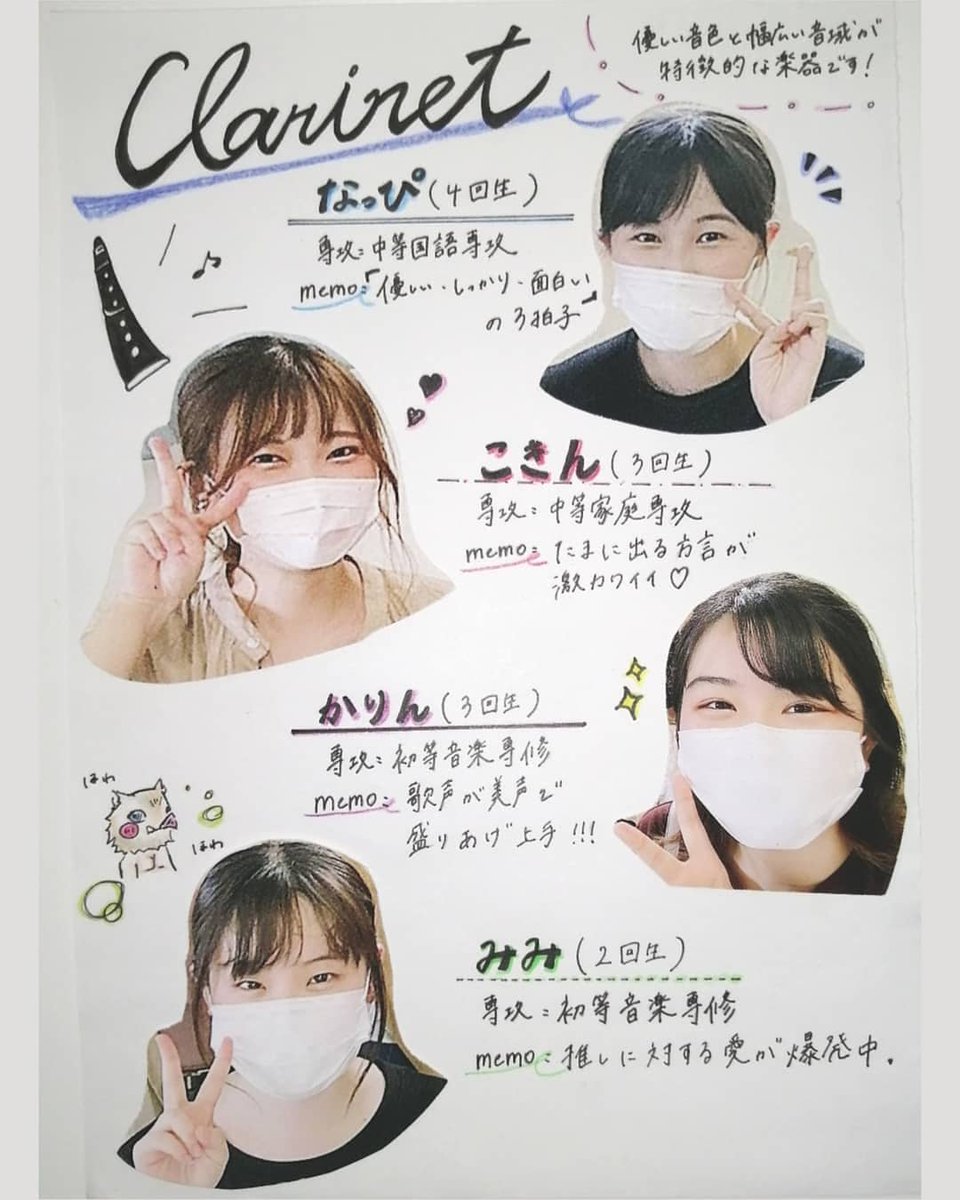 Clarinet
優しい音色と幅広い音域が
特徴的な楽器です！
なっぴ（4回生）
専攻：中等国語専攻
memo：「優しい・しっかり・面白い
の3拍子」
こさん（3回生）
専攻：中等家庭専攻
memo：たまに出る方言が
激カワイイ♡
かりん（3回生）
専攻：初等音楽専修
memo：歌声が美声で
盛りあげ上手!!!
ほわ
ほわ
みみ（2回生）
専攻：初等音楽専修
memo：推しに対する愛が爆発中。